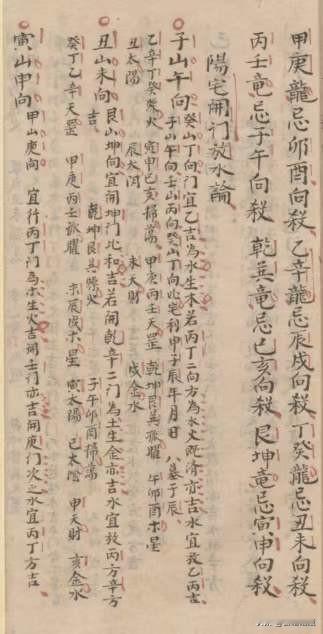 甲庚龍忌卯酉向殺 乙辛龍忌辰戌向殺 丁癸龍忌丑未向殺
丙壬竜忌子午向殺 乾巽竜忌巳亥向殺 艮坤竜忌寅申向殺
陽宅開门放水論
子山午向 癸山丁向门宜乙吉為水生木若丙丁二向方為水火既濟亦吉水宜放乙丙吉
子山午向壬山丙向癸山丁向此宅利申子辰年月日 八墓于辰
乙辛丁癸燥火 寅申巳亥掃蕩 甲庚丙壬天罡 乾坤艮巽孤曜 午卯酉木星
丑太陽 辰太阴 未天財 戌金水
丑山未向 艮山坤向宜開坤门比和吉若開乾辛二门為土生金亦吉水宜放丙方辛方
吉 乾坤艮巽燥火 子午卯酉掃蕩
癸丁乙辛天罡 甲庚丙壬孤曜 未辰戌木星 寅太陽 巳太陰 申天財 亥金水
寅山申向 甲山庚向 宜行丙丁门為木生火吉開壬门亦吉開庚门次之水宜丙丁方吉